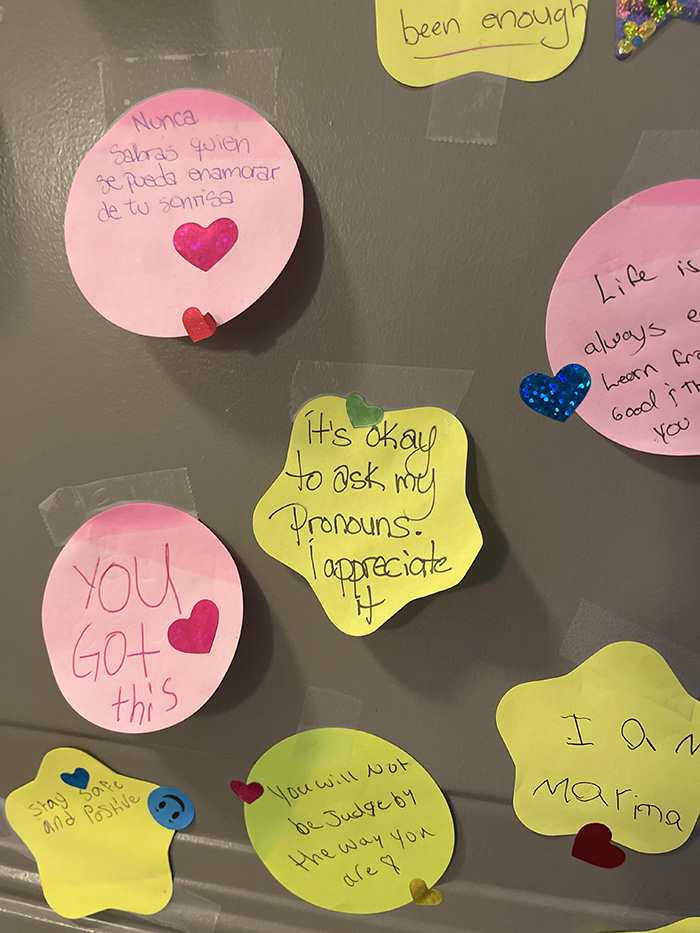 been enough
Nunca
Sabras quien
se pueda enamorar
de tu sonrisa
Life is
always
Learn
Good & th
you
it's okay
to ask my
Pronouns.
I appreciate
it
YOU
GOT
this
I am
Marina
Stay safe
and Positive
You will Not
be Judge by
the way you
are